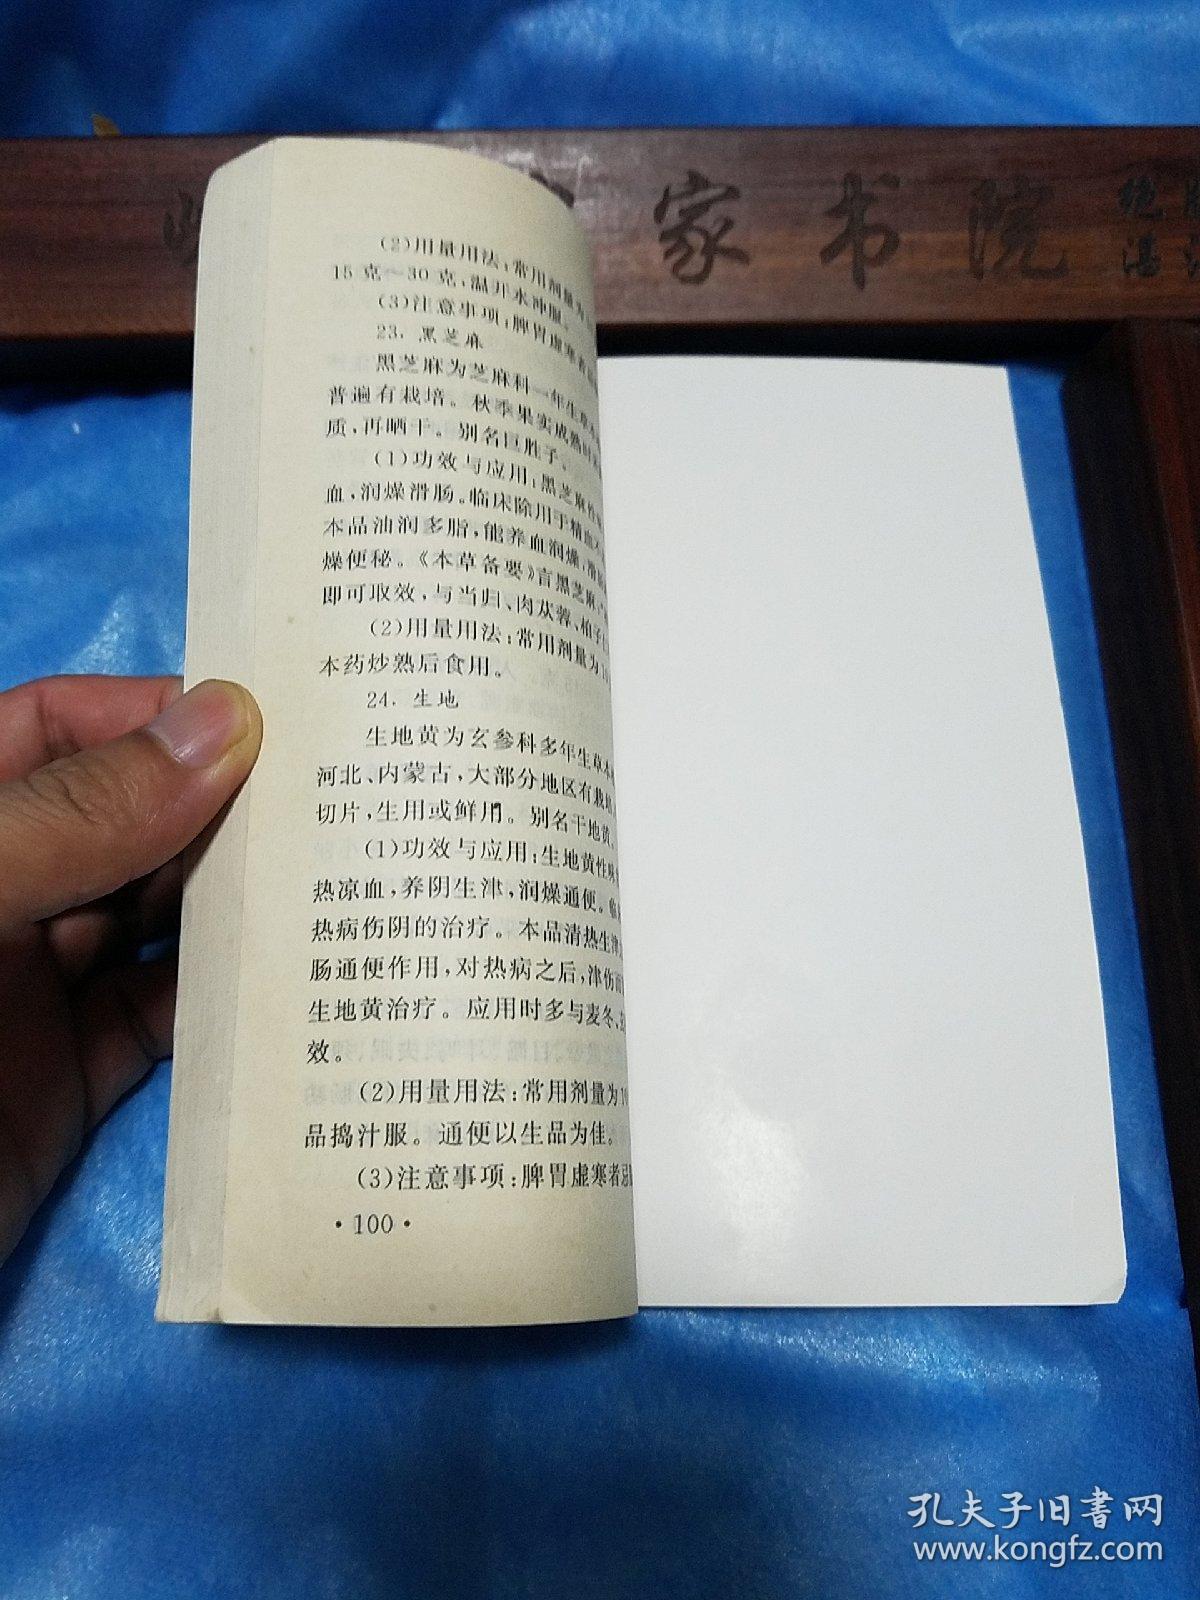 家书院
(2)用量用法:常用剂量为
15克~30克,温开水冲服。
(3)注意事项:脾胃虚寒者
23. 黑芝麻
黑芝麻为芝麻科一年生草本
普遍有栽培。秋季果实成熟时
质,再晒干。别名巨胜子。
(1)功效与应用:黑芝麻性
血,润燥滑肠。临床除用于精血
本品油润多脂,能养血润燥,滑
燥便秘。《本草备要》言黑芝麻
即可取效,与当归、肉苁蓉、柏子
(2)用量用法:常用剂量为1
本药炒熟后食用。
24. 生地
生地黄为玄参科多年生草本
河北、内蒙古,大部分地区有栽培
切片,生用或鲜用。别名干地黄。
(1)功效与应用:生地黄性味
热凉血,养阴生津,润燥通便。临
热病伤阴的治疗。本品清热生津
肠通便作用,对热病之后,津伤而
生地黄治疗。应用时多与麦冬、
效。
(2)用量用法:常用剂量为1
品捣汁服。通便以生品为佳。
(3)注意事项:脾胃虚寒者忌
·100·
孔夫子旧书网
www.kongfz.com